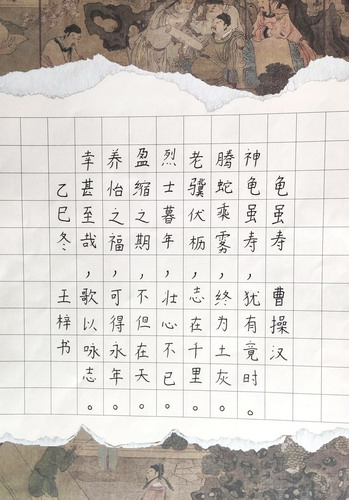 龟虽寿 曹操汉
神龟虽寿,犹有竟时。
腾蛇乘雾,终为土灰。
老骥伏枥,志在千里。
烈士暮年,壮心不已。
盈缩之期,不但在天。
养怡之福,可得永年。
幸甚至哉,歌以咏志。
乙巳冬 王梓书